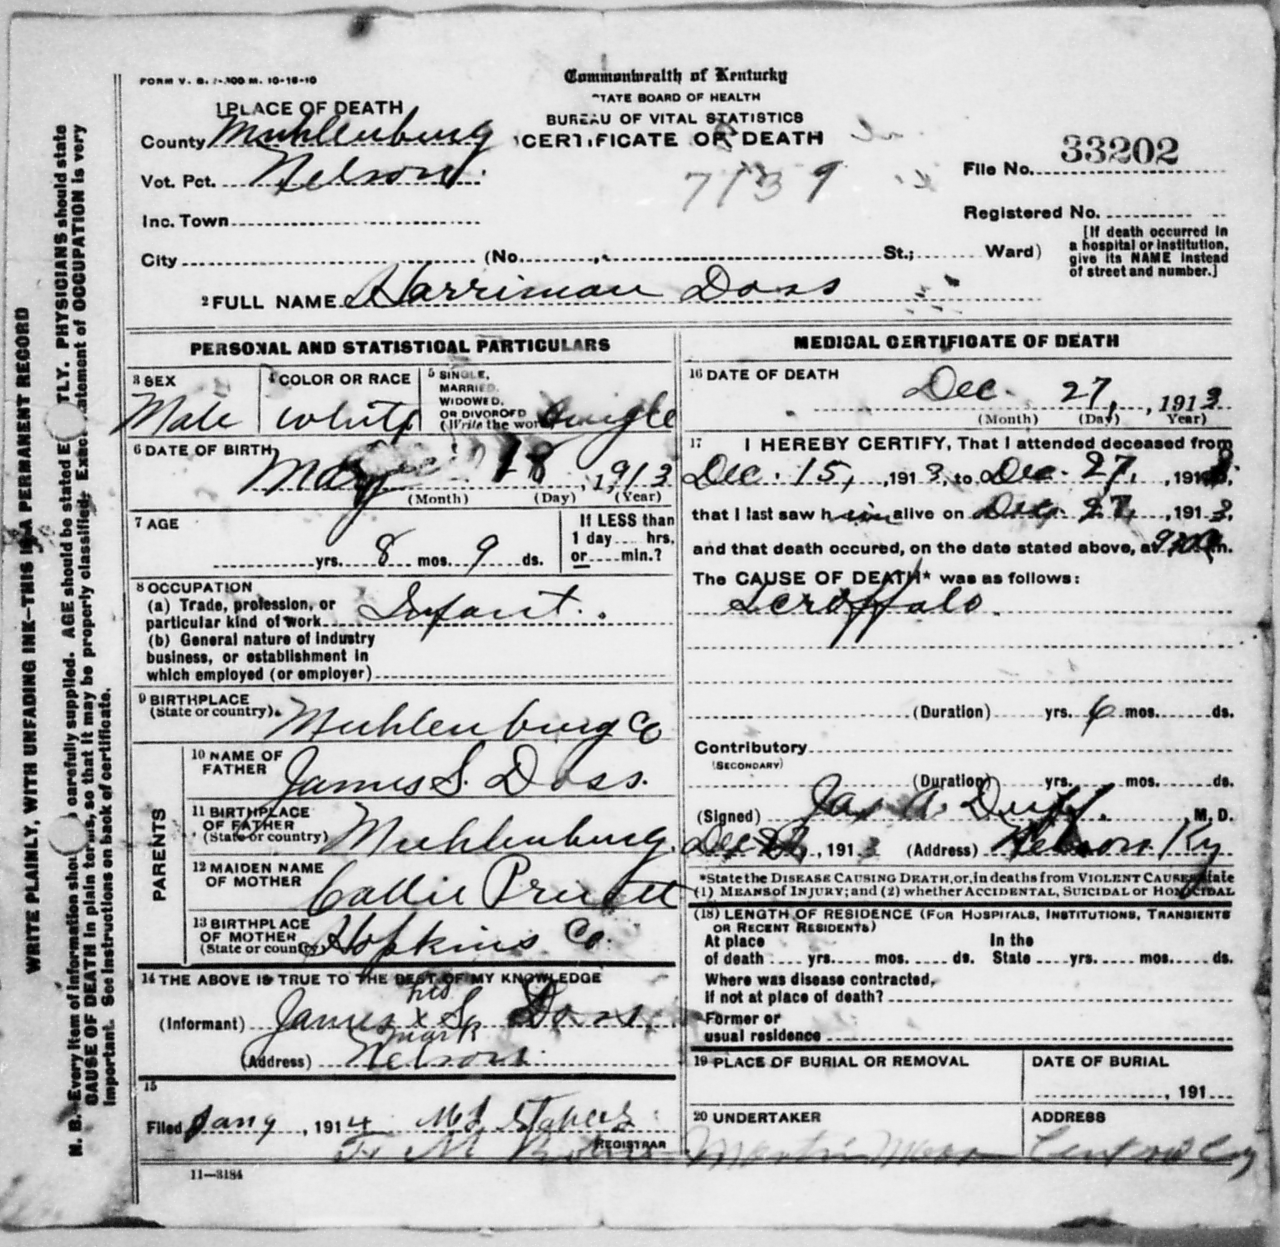 FORM V. S. 10-18-10
Commonwealth of Kentucky
STATE BOARD OF HEALTH
BUREAU OF VITAL STATISTICS
CERTIFICATE OF DEATH
1 PLACE OF DEATH
County Muhlenburg
Vot. Pct. Nelson.
7139
File No. 33202
Inc. Town
Registered No.
[If death occurred in a hospital or institution, give its NAME instead of street and number.]
City (No. , St.; Ward)
2 FULL NAME Harriman Doss
PERSONAL AND STATISTICAL PARTICULARS
3 SEX Male
4 COLOR OR RACE White
5 SINGLE, MARRIED, WIDOWED, OR DIVORCED (Write the word) Single
6 DATE OF BIRTH May 18, 1913
(Month) (Day) (Year)
7 AGE
yrs. 8 mos. 9 ds.
If LESS than 1 day hrs. or min.?
8 OCCUPATION
(a) Trade, profession, or particular kind of work Infant.
(b) General nature of industry business, or establishment in which employed (or employer)
9 BIRTHPLACE (State or country). Muhlenburg Co
PARENTS
10 NAME OF FATHER James S. Doss.
11 BIRTHPLACE OF FATHER (State or country) Muhlenburg
12 MAIDEN NAME OF MOTHER Callie Pruett
13 BIRTHPLACE OF MOTHER (State or country) Hopkins Co.
14 THE ABOVE IS TRUE TO THE BEST OF MY KNOWLEDGE
his
(Informant) James x S. Doss.
mark
(Address) Nelson.
15
Filed Jany, 1914
REGISTRAR
11—3184
MEDICAL CERTIFICATE OF DEATH
16 DATE OF DEATH
Dec. 27, 1913
(Month) (Day) (Year)
17 I HEREBY CERTIFY, That I attended deceased from
Dec. 15, 1913, to Dec. 27, 191
that I last saw him alive on Dec. 27, 1913,
and that death occured, on the date stated above, at m.
The CAUSE OF DEATH* was as follows:
(Duration) yrs. 6 mos. ds.
Contributory
(SECONDARY)
(Duration) yrs. mos. ds.
(Signed) Jas A. Duff. M. D.
Dec , 1913 (Address) Nelson Ky
*State the DISEASE CAUSING DEATH, or, in deaths from VIOLENT CAUSES, state
(1) MEANS of INJURY; and (2) whether ACCIDENTAL, SUICIDAL or HOMICIDAL
(18) LENGTH OF RESIDENCE (FOR HOSPITALS, INSTITUTIONS, TRANSIENTS
OR RECENT RESIDENTS)
At place of death yrs. mos. ds. In the State yrs. mos. ds.
Where was disease contracted,
If not at place of death?
Former or
usual residence
19 PLACE OF BURIAL OR REMOVAL
DATE OF BURIAL
, 191
20 UNDERTAKER
ADDRESS
WRITE PLAINLY, WITH UNFADING INK—THIS IS A PERMANENT RECORD
N. B.—Every item of information should carefully supplied. AGE should be stated TLY. PHYSICIANS should state
CAUSE OF DEATH in plain terms, so that it may be properly classified. Exact statement of OCCUPATION is very
important. See instructions on back of certificate.